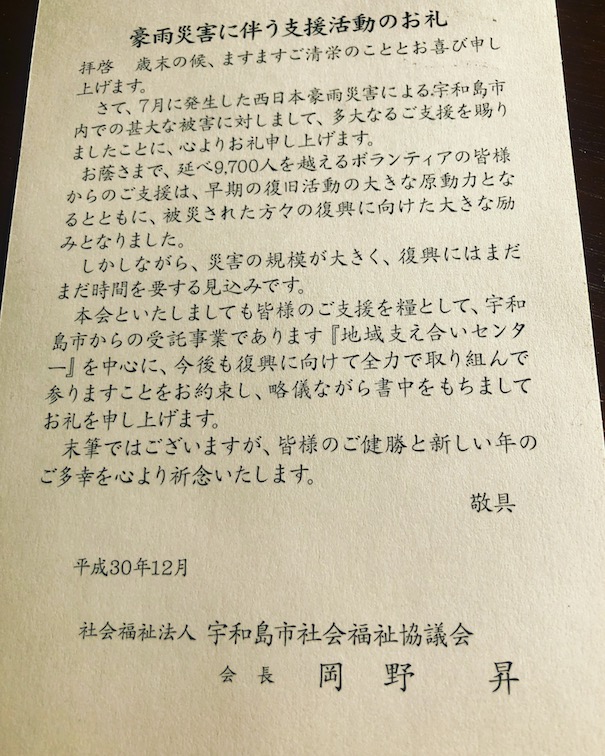 豪雨災害に伴う支援活動のお礼
拝啓　歳末の候、ますますご清栄のこととお喜び申し
上げます。
さて、7月に発生した西日本豪雨災害による宇和島市
内での甚大な被害に対しまして、多大なるご支援を賜り
ましたことに、心よりお礼申し上げます。
お蔭さまで、延べ9,700人を越えるボランティアの皆様
からのご支援は、早期の復旧活動の大きな原動力とな
るとともに、被災された方々の復興に向けた大きな励
みとなりました。
しかしながら、災害の規模が大きく、復興にはまだ
まだ時間を要する見込みです。
本会といたしましても皆様のご支援を糧として、宇和
島市からの受託事業であります『地域支え合いセンタ
ー』を中心に、今後も復興に向けて全力で取り組んで
参りますことをお約束し、略儀ながら書中をもちまして
お礼を申し上げます。
末筆ではございますが、皆様のご健勝と新しい年の
ご多幸を心より祈念いたします。
敬具
平成30年12月
社会福祉法人 宇和島市社会福祉協議会
会長　岡野　昇